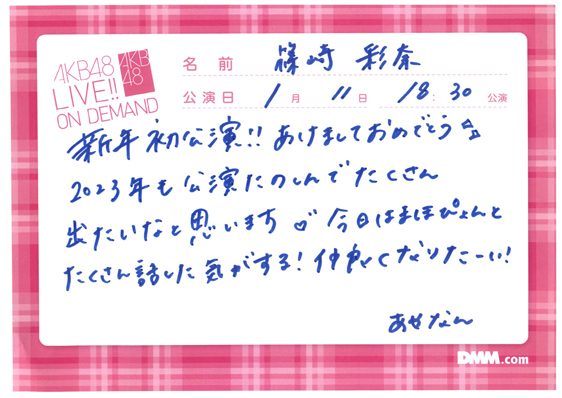 AKB48
LIVE!!
ON DEMAND
AKB
48
名前 篠崎 彩奈
公演日 1月 11日 18:30 公演
新年初公演!! あけましておめでとう☆
2023年も公演たのしんでたくさん
出たいなと思います♡ 今日はまほぴょんと
たくさん話した気がする! 仲良くなりたーい!
あやなん
DMM.com